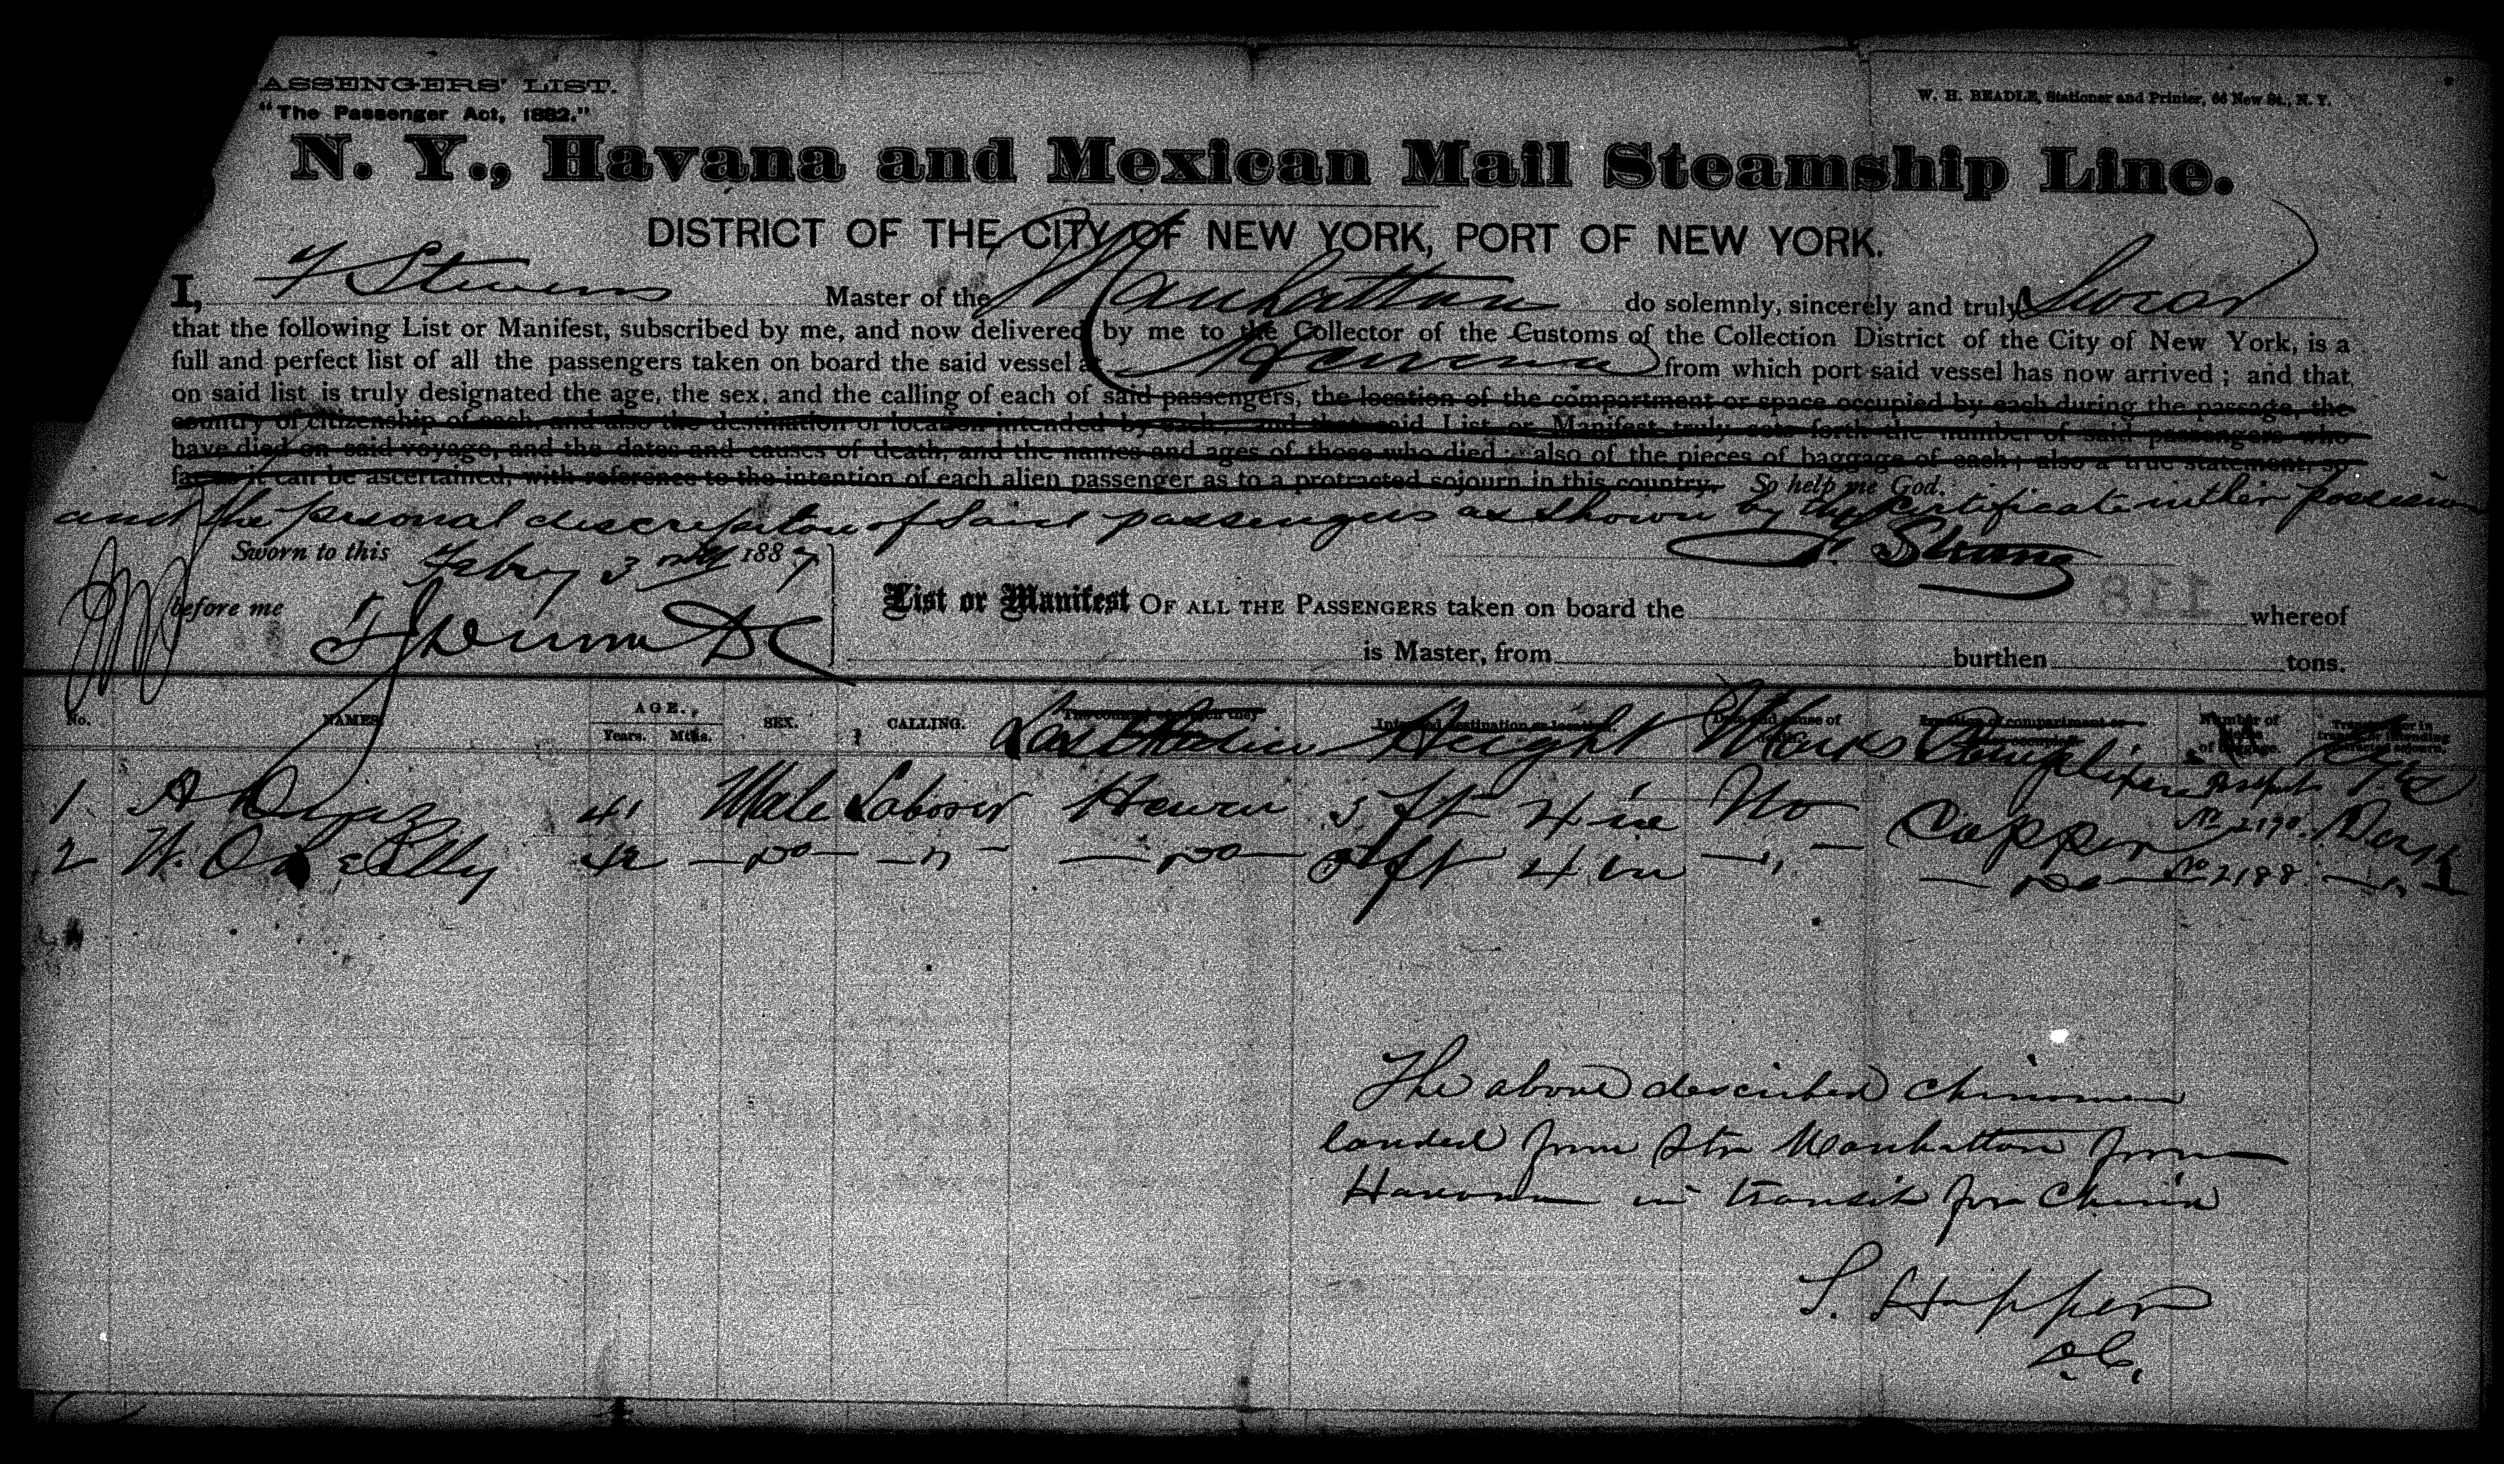 ASSENGERS' LIST.
"The Passenger Act, 1882."
W. H. BEADLE, Stationer and Printer, 66 New St., N. Y.
N. Y., Havana and Mexican Mail Steamship Line.
DISTRICT OF THE CITY OF NEW YORK, PORT OF NEW YORK.
I, F Stevens Master of the Manhattan do solemnly, sincerely and truly Swear
that the following List or Manifest, subscribed by me, and now delivered by me to the Collector of the Customs of the Collection District of the City of New York, is a
full and perfect list of all the passengers taken on board the said vessel at Havana from which port said vessel has now arrived; and that
on said list is truly designated the age, the sex, and the calling of each of said passengers, the location of the compartment or space occupied by each during the passage, the
country of citizenship of each, and also the destination or location intended by each; and that said List or Manifest truly sets forth the number of said passengers who
have died on said voyage, and the dates and causes of death, and the names and ages of those who died; also of the pieces of baggage of each; also a true statement, so
far as it can be ascertained, with reference to the intention of each alien passenger as to a protracted sojourn in this country. So help me God.
and the personal description of said passengers as shown by the certificate in their possession
Sworn to this Feby 3 1887
before me
118
List or Manifest OF ALL THE PASSENGERS taken on board the whereof
is Master, from burthen tons.
No. NAMES. AGE. Years. Mths. SEX. CALLING. Last Residence Height Marks Complexion Eyes
1 A 41 Male Laborer Havana 5 ft 4 in No Copper No 2190 Dark
2 W. 42 — Do — — " — — Do — 5 ft 4 in — " — — Do — No 2188 — " —
The above described Chinamen
landed from Str Manhattan from
Havana in transit for China
S. Hopper